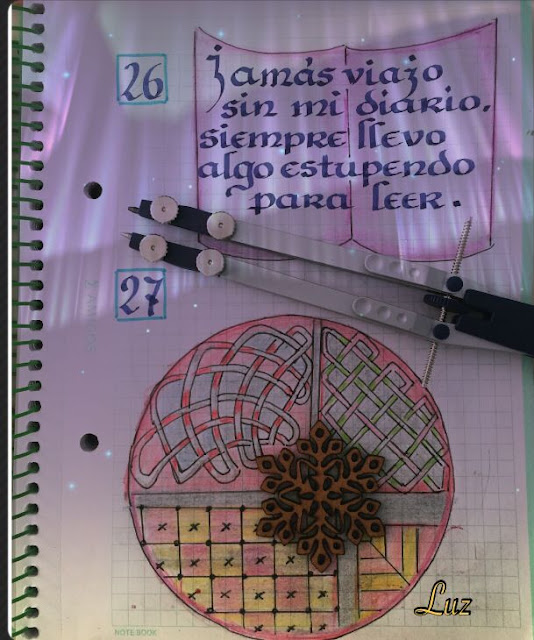 26
jamás viajo
sin mi diario,
siempre llevo
algo estupendo
para leer.
27
Luz
NOTE BOOK